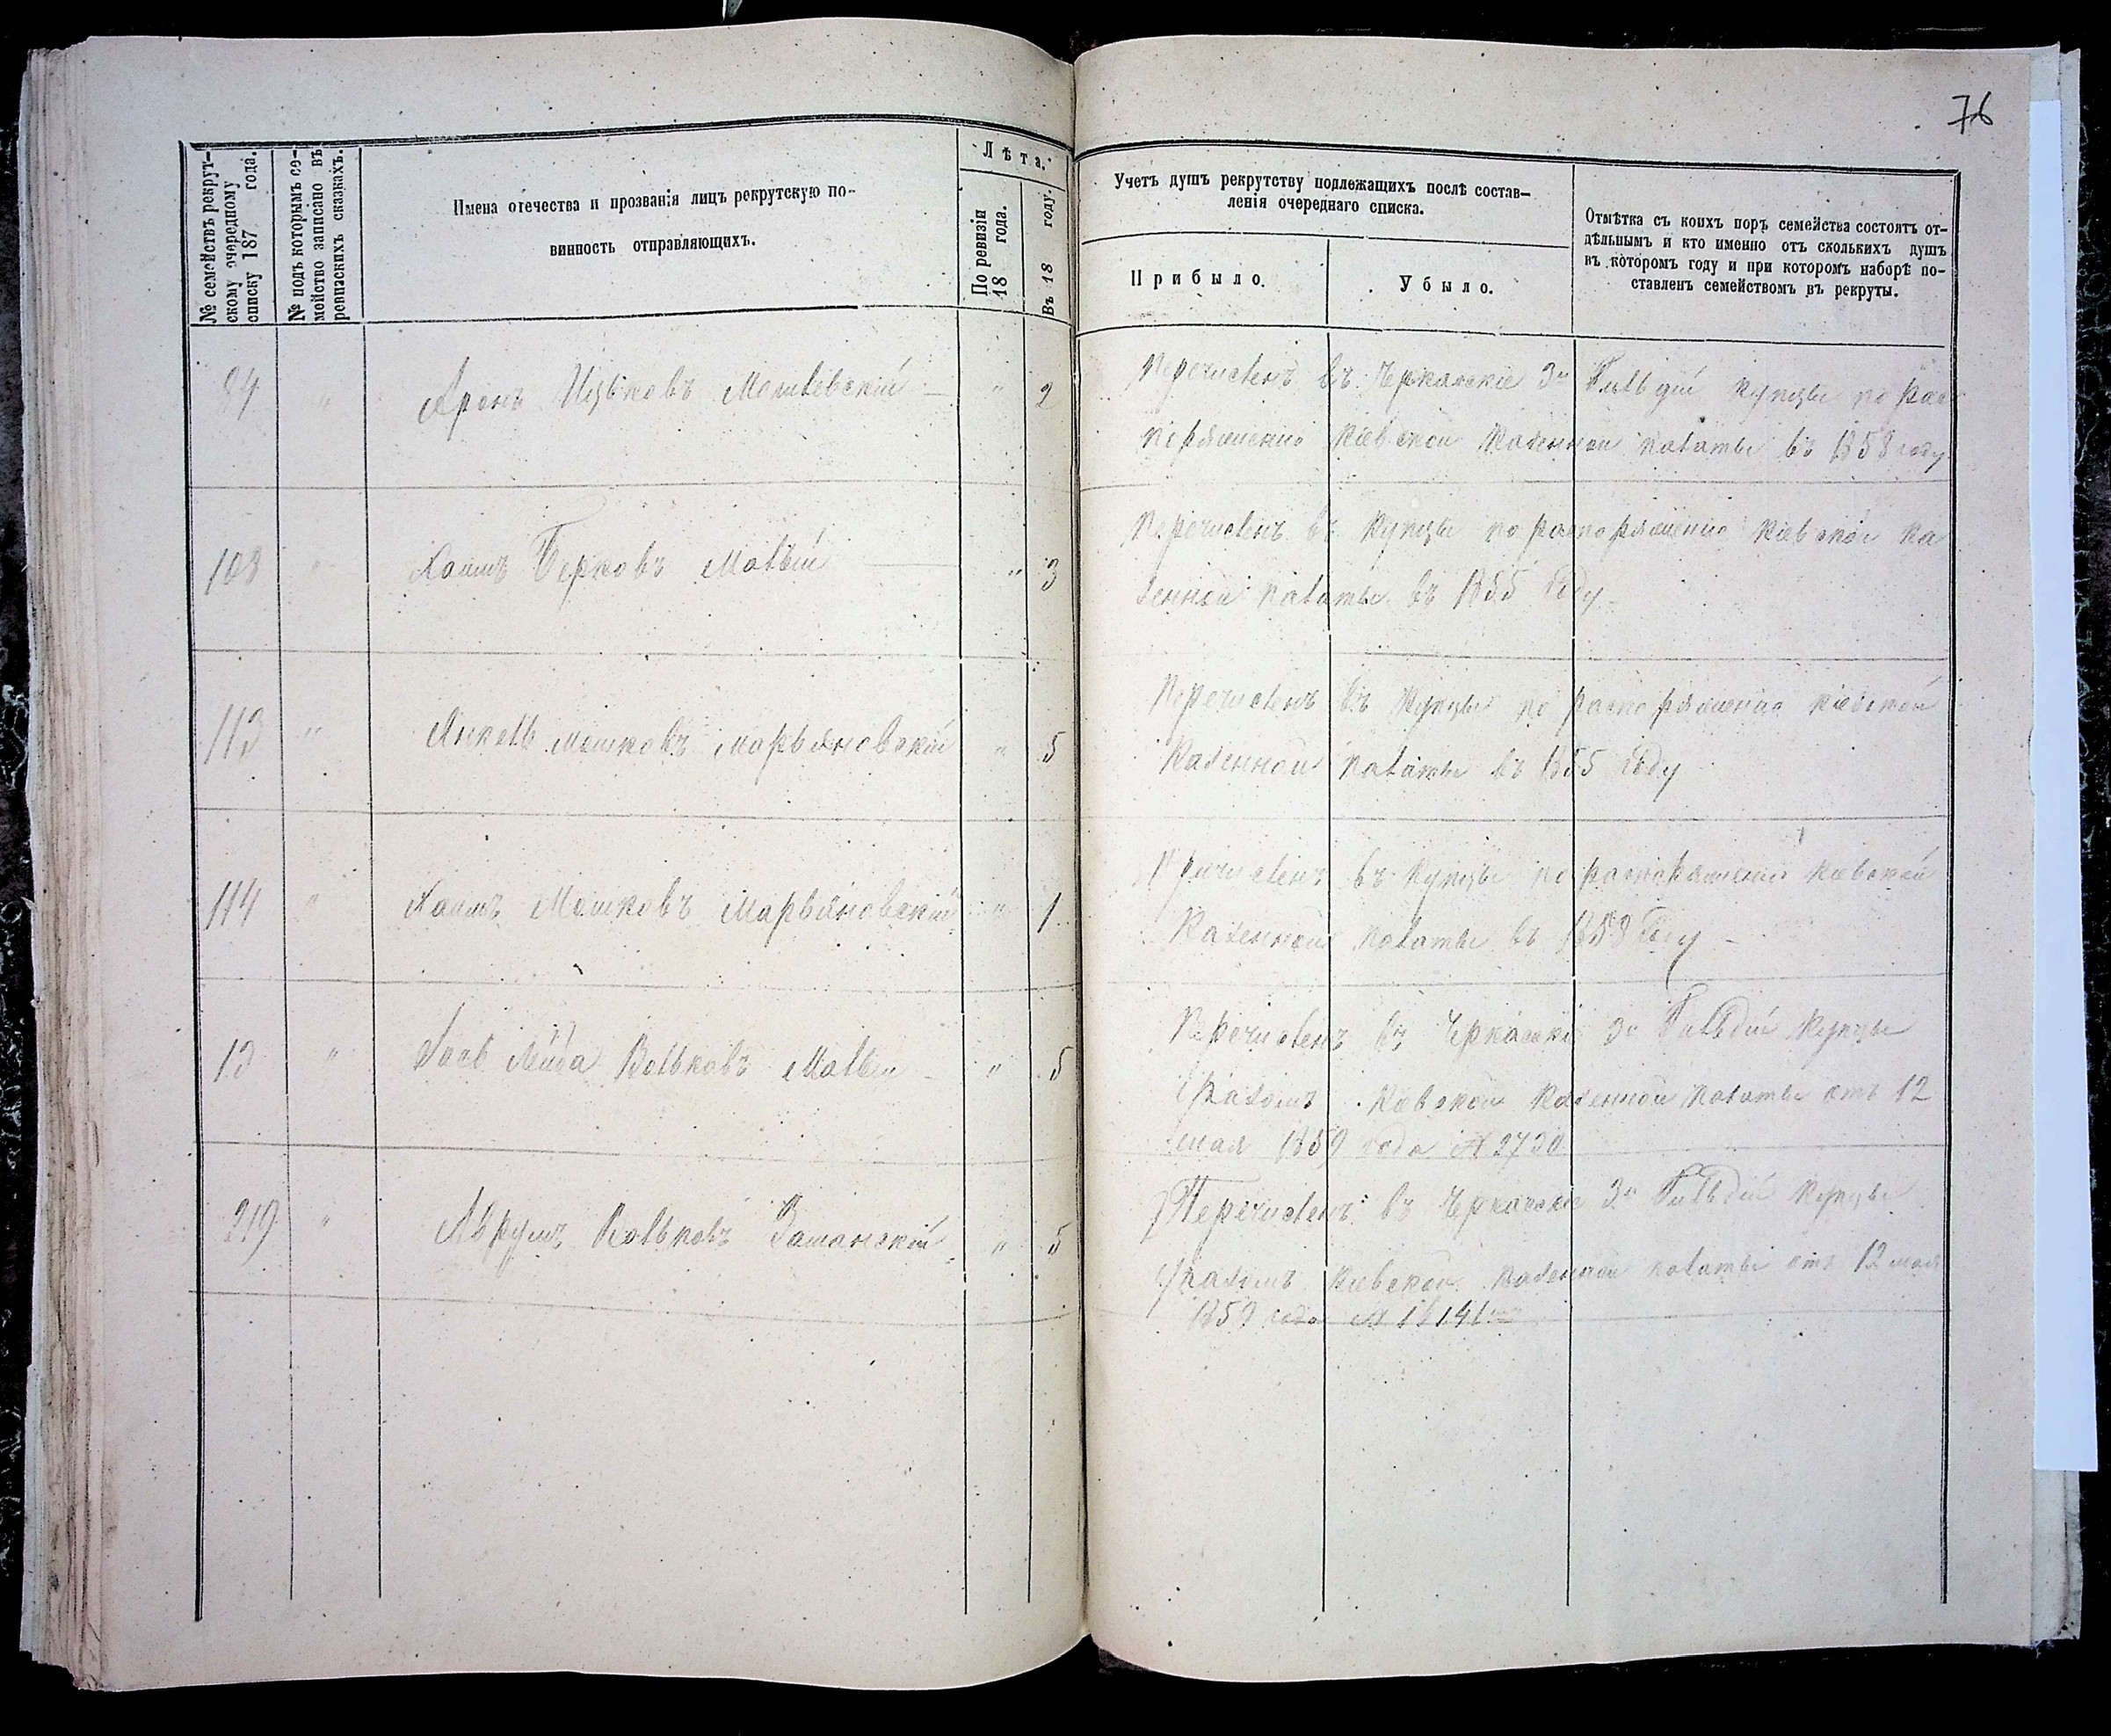 76
№ семействъ рекрут-
скому очередному
списку 187 года.
№ подъ которымъ се-
мейство записано въ
ревизскихъ сказкахъ.
Имена отечества и прозванія лицъ рекрутскую по-
винность отправляющихъ.
Лѣта.
По ревизіи
18 года.
Въ 18 году.
Учетъ душъ рекрутству подлежащихъ послѣ состав-
ленія очереднаго списка.
Прибыло.
Убыло.
Отмѣтка съ коихъ поръ семейства состоятъ от-
дѣльнымъ и кто именно отъ сколькихъ душъ
въ которомъ году и при которомъ наборѣ по-
ставленъ семействомъ въ рекруты.
84 " Аронъ Ицковъ — " 2
Перечисленъ въ Черкаскіе 3й Гильдіи купцы по рас
поряженію Кіевской Казенной палаты въ 1858 году
108 " Хаимъ Берковъ Малый " 3
Перечисленъ въ Купцы по распоряженію Кіевской Ка
зенной палаты въ 1855 году
113 " Янкель Мошковъ Марьяновскій " 5
Перечисленъ въ Купцы по распоряженію Кіевской
Казенной палаты въ 1855 году
114 " Хаимъ Мошковъ Марьяновскій " 1
Перечисленъ въ Купцы по распоряженію Кіевской
Казенной палаты въ 1858 году —
13 " Лейба Вольковъ Малый — " 5
Перечисленъ въ Черкаскіе 3й Гильдіи Купцы
Указомъ Кіевской Казенной палаты отъ 12
мая 1859 года № 2730
319 " Аврумъ Вольковъ " 5
Перечисленъ въ Черкаскіе 3й Гильдіи Купцы
Указомъ Кіевской Казенной палаты отъ 12 мая
1859 года №